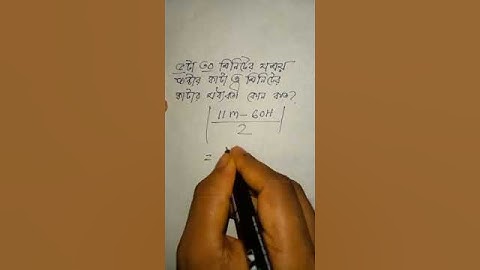 ২টা ৩০ মিনিটের সময়
ঘন্টার কাটা ও মিনিটের
কাটার মধ্যবর্তী কোন কত?
| 11M - 60H |
2
=